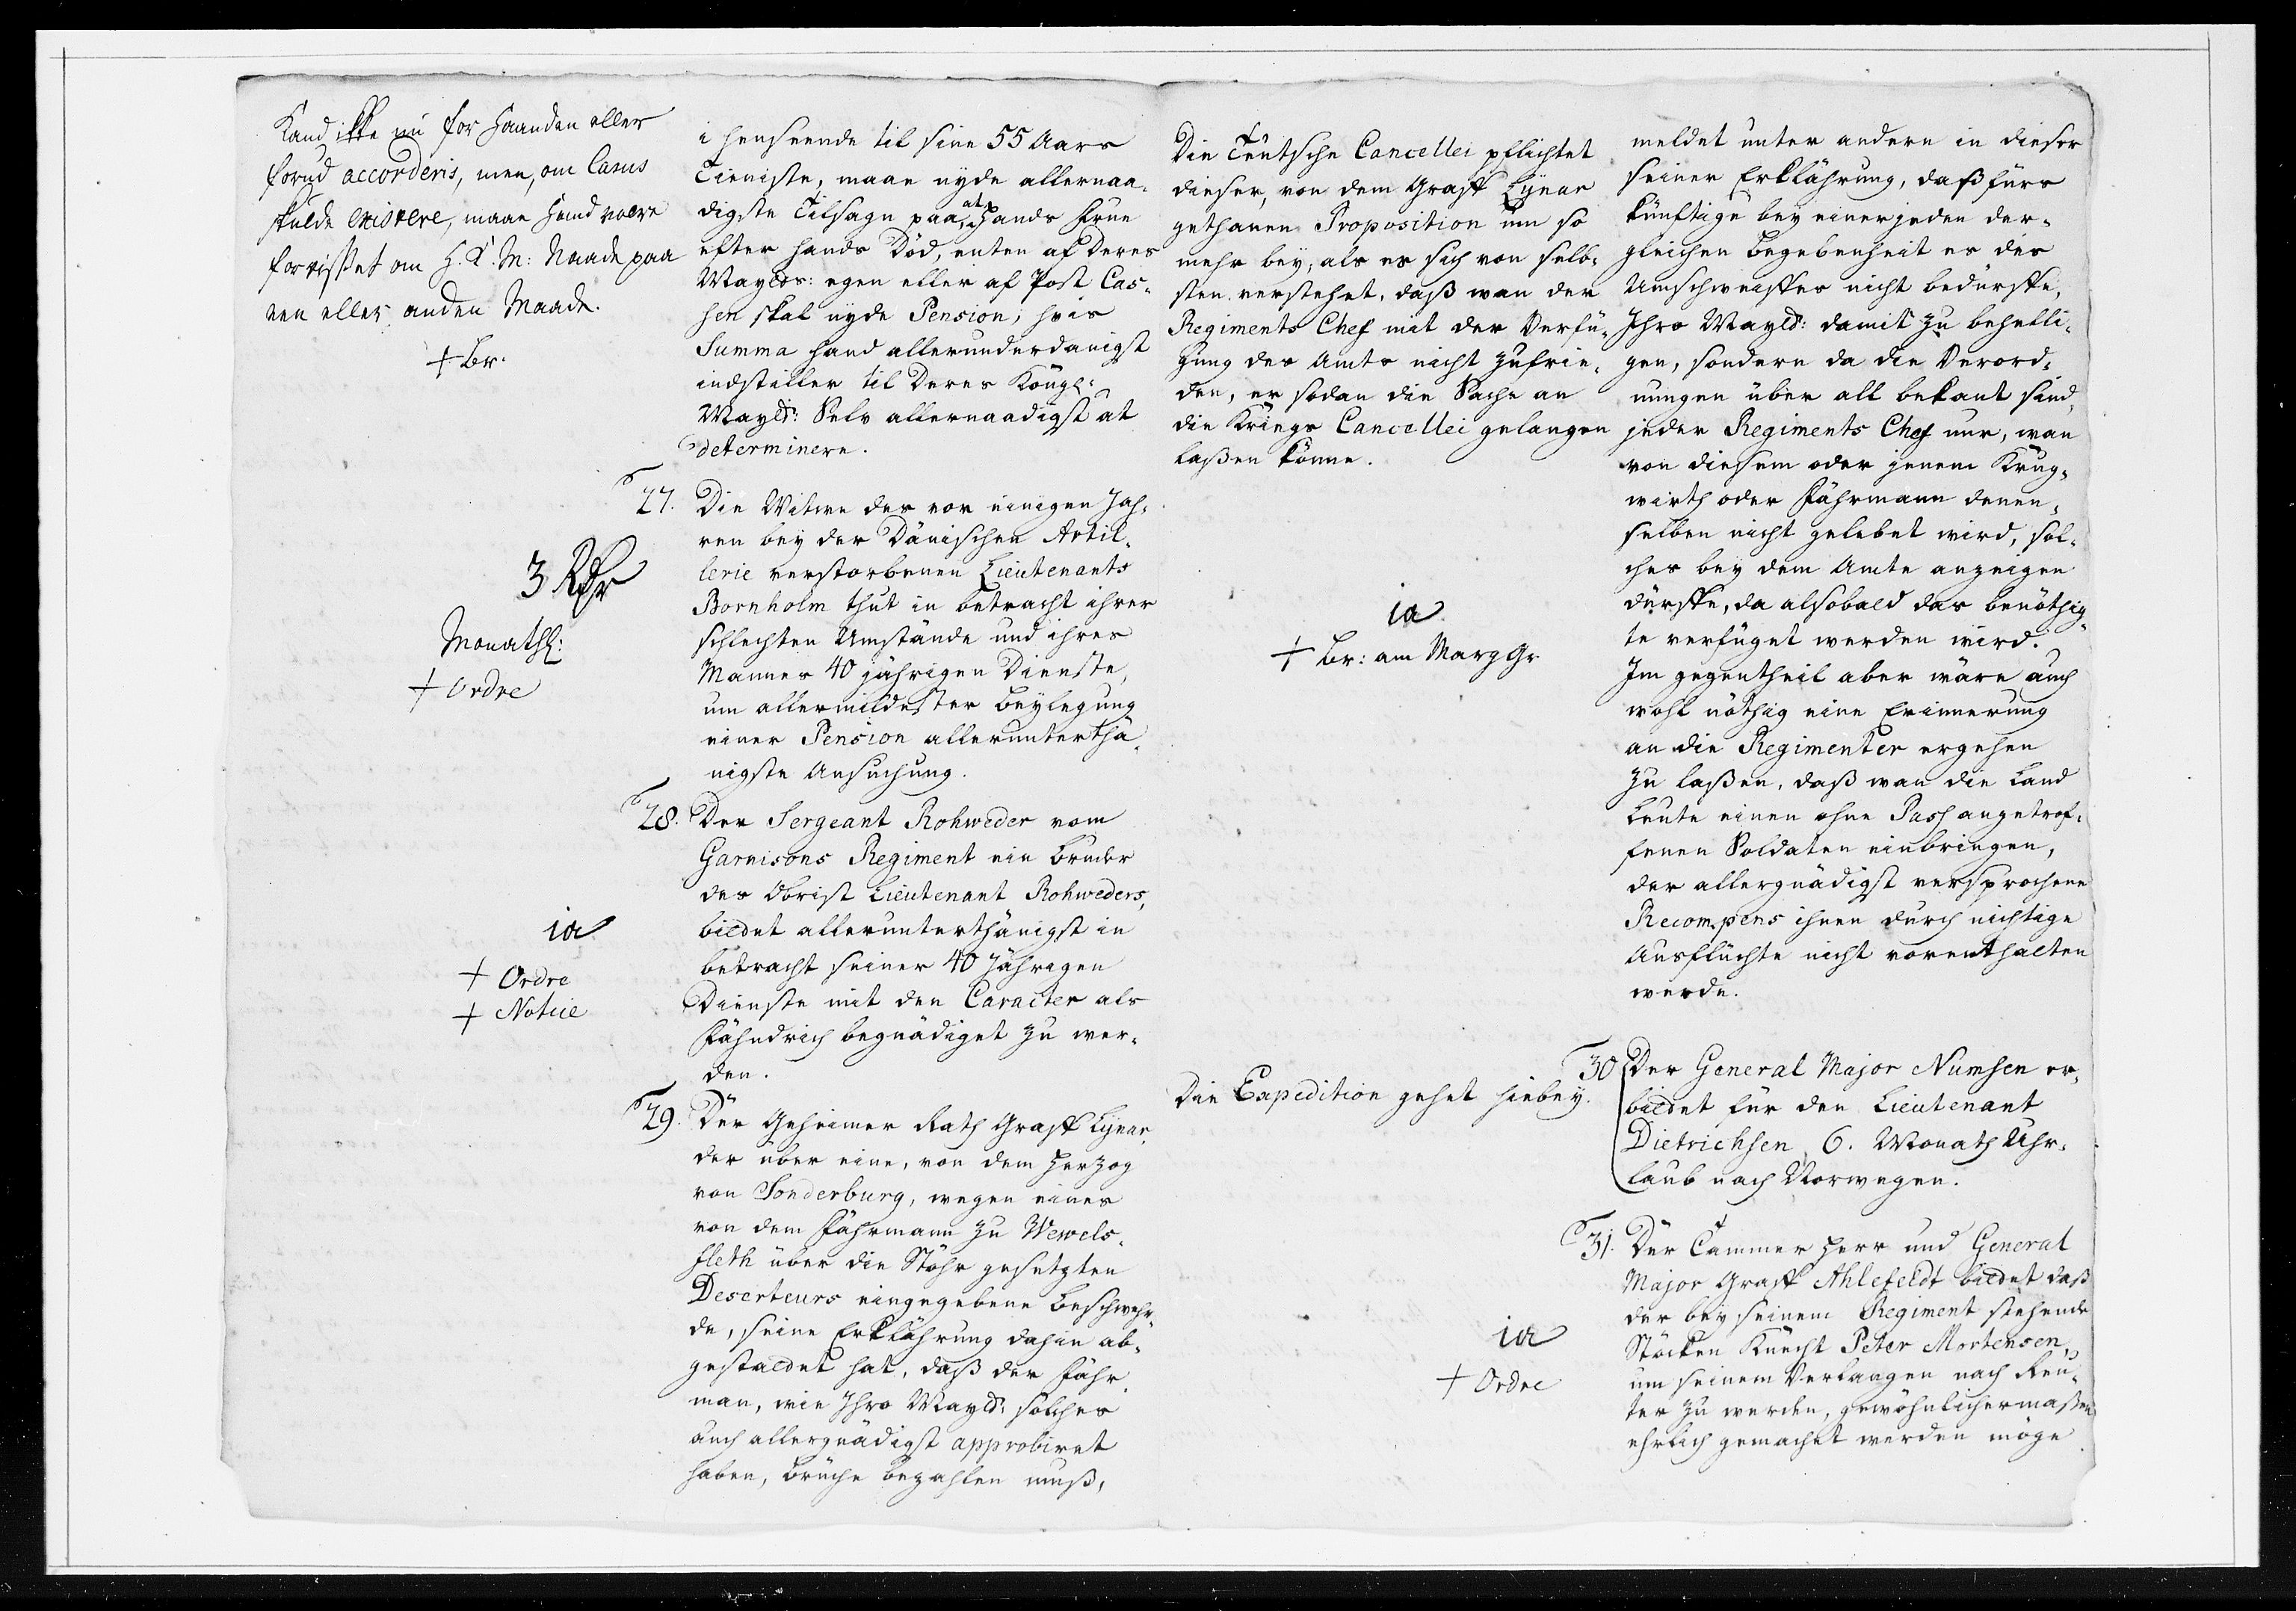 Kand ikke nu for Haanden eller
forud accorderis, men, om Casus
skulde existere, maae hand være
forvisset om H. K. M: Naade paa
een eller anden Maade.
+ Br.
i henseende til sine 55 Aars
Tieniste, maae nyde allernaa-
digste Tilsagn paa, at Hands Frue
efter hands Död, enten af Deres
Mayts: egen eller af Post Cas-
sen skal nyde Pension, hvis
Summa hand allerunderdanigst
indstiller til Deres Kongl:
Mayts: Selv allernaadigst at
determinere.
27. Die Witwe des vor einigen Jah-
ren bey der Dänischen Artil-
lerie verstorbenen Lieutenants
Bornholm thut in betracht ihrer
schlechten Umstände und ihres
Mannes 40 jährigen Dienste,
um allermildester beylegung
einer Pension allerunterthä-
nigste Ansuchung.
3 Rdr
Monathl:
+ Ordre
28. Der Sergeant Rohweder vom
Garnisons Regiment ein bruder
des Obrist Lieutenant Rohweders,
bittet allerunterthänigst in
betracht seiner 40 Jährigen
Dienste mit den Caracter als
Fähndrich begnädiget zu wer-
den.
ia
+ Ordre
+ Notice
29. Der Geheimer Rath Graff Lynar,
der über eine, von dem Herzog
von Sonderburg, wegen eines
von dem Fährmann zu Wewels-
fleth über die Stöhr gesetzten
Deserteurs eingegebene beschwehr-
de, seine Erklährung dahin ab-
gestattet hat, daß der Fähr-
man, wie Ihro Mayt: solches
auch allergnädigst approbiret
haben, brüche bezahlen muß,
Die Teutsche Cancellei pflichtet
dieser, von dem Graff Lynar
gethanen Proposition um so
mehr bey, als es sich von selb-
sten verstehet, daß wan der
Regiments Chef mit der Verfü-
gung des Amts nicht zufrie-
den, er sodan die Sache an
die Kriegs Cancellei gelangen
laßen könne.
ia
+ Br: am Marggr
meldet unter andern in dieser
seiner Erklährung, daß fürs
künftige bey einer jeden der-
gleichen begebenheit es des
Umschweiffes nicht bedürffe,
Ihro Mayt: damit zu behelli-
gen, sondern da die Verord-
nungen über all bekant sind,
jeder Regiments Chef nur, wan
von diesem oder jenem Krug-
wirth oder Fährmann denen-
selben nicht gelebet wird, sol-
ches bey dem Amte anzeigen
dürffe, da alsobald das benöthig-
te verfüget werden wird.
Im gegentheil aber wäre auch
wohl nöthig eine Erinnerung
an die Regimenter ergehen
zu laßen, daß wan die Land
Leute einen ohne Pass angetrof-
fenen Soldaten einbringen,
der allergnädigst versprochene
Recompens ihnen durch nichtige
Ausflüchte nicht vorenthalten
werde.
Die Expedition gehet hiebey.
30 Der General Major Numsen er-
bittet für den Lieutenant
Dietrichsen 6. Monath Uhr-
laub nach Norwegen.
31. Der Cammer Herr und General
Major Graff Ahlefeldt bittet daß
der bey seinem Regiment stehende
Stöcken Knecht Peter Mortensen,
um seinem Verlangen nach Reu-
ter zu werden, gewöhnlichermaßen
ehrlich gemachet werden möge
ia
+ Ordre